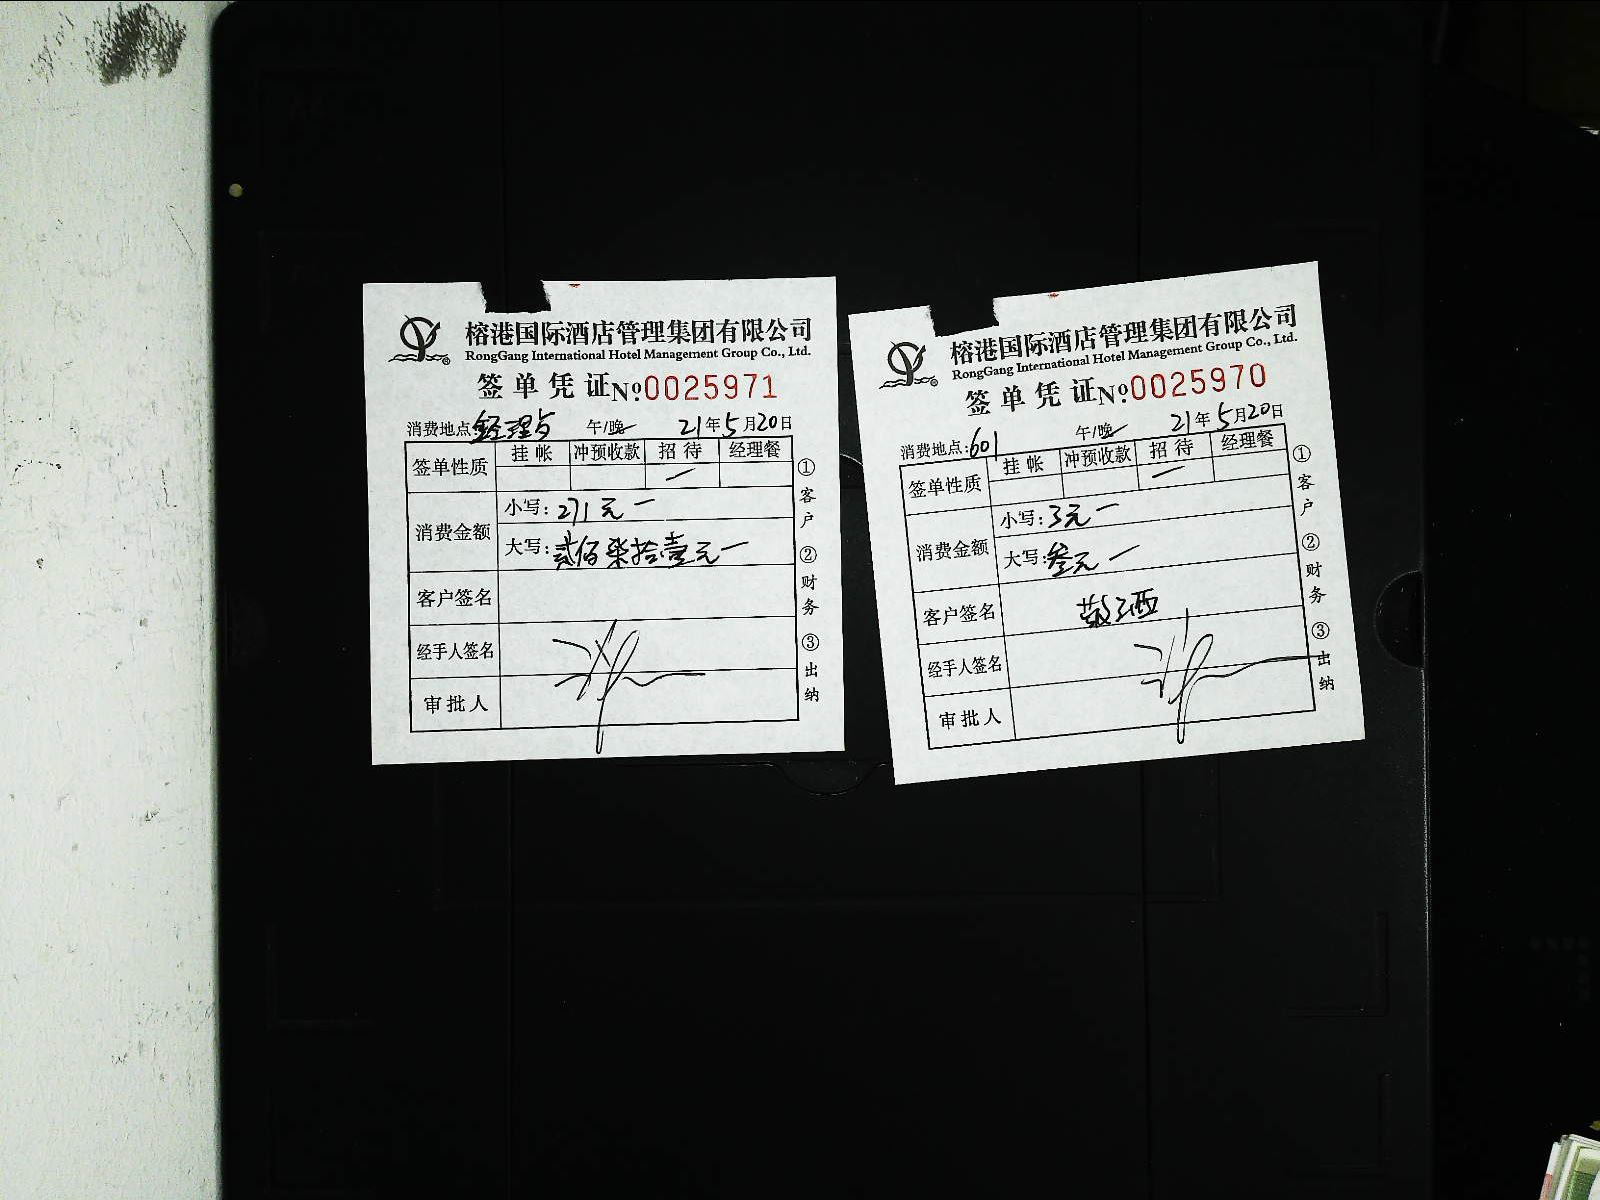 榕港国际酒店管理集团有限公司
RongGang International Hotel Management Group Co., Ltd.
签单凭证 №0025971
消费地点: 经理 午/晚 21年5月20日
签单性质 挂帐 冲预收款 招待 经理餐
消费金额
小写: 271元一
大写: 贰佰柒拾壹元一
客户签名
经手人签名
审批人
①客户 ②财务 ③出纳
榕港国际酒店管理集团有限公司
RongGang International Hotel Management Group Co., Ltd.
签单凭证 №0025970
消费地点: 601 午/晚 21年5月20日
签单性质 挂帐 冲预收款 招待 经理餐
消费金额
小写: 3元一
大写: 叁元一
客户签名 敬酒
经手人签名
审批人
①客户 ②财务 ③出纳